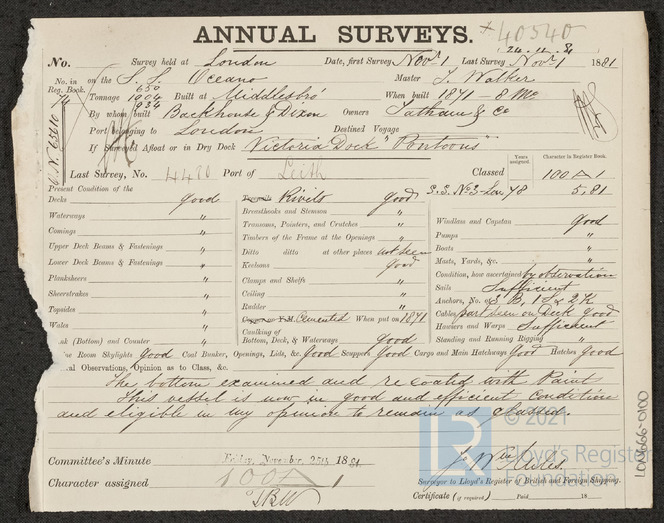 ANNUAL SURVEYS. 40540
24.11.81
No. Survey held at London Date, first Survey Novr. 1 Last Survey Novr. 1 1881
No. in Reg. Book. 74 on the S.S. Oceano Master J. Walker
650
Tonnage 1004 Built at Middlesbro' When built 1871 8 Mo
934
By whom built Backhouse & Dixon Owners Tatham & Co
Port belonging to London Destined Voyage
If Surveyed Afloat or in Dry Dock Victoria Dock "Pontoons"
Last Survey, No. 4420 Port of Leith Classed
Years assigned. Character in Register Book.
100 A 1
S.S. No 3 - Lon 78 5,81
Present Condition of the
Decks good
Waterways "
Comings "
Upper Deck Beams & Fastenings "
Lower Deck Beams & Fastenings "
Planksheers "
Sheerstrakes "
Topsides "
Wales "
(Bottom) and Counter "
Treenails Rivets good
Breasthooks and Stemson "
Transoms, Pointers, and Crutches "
Timbers of the Frame at the Openings "
Ditto ditto at other places not seen
Keelsons good
Clamps and Shelfs "
Ceiling "
Rudder "
Cemented When put on 1871
Caulking of Bottom, Deck, & Waterways good
Windlass and Capstan good
Pumps "
Boats "
Masts, Yards, &c. "
Condition, how ascertained by observation
Sails Sufficient
Anchors, No. of 3 B. 1 S. & 2 K
Cables part seen on Deck good
Hawsers and Warps Sufficient
Standing and Running Rigging "
Room Skylights Good Coal Bunker, Openings, Lids, &c. Good Scuppers Good Cargo and Main Hatchways Good Hatches Good
Observations, Opinion as to Class, &c.
The bottom examined and re coated with Paint
This vessel is now in good and efficient condition
and eligible in my opinion to remain as classed.
© 2021
Lloyd's Register
Foundation
LR
Committee's Minute Friday, November 25th 1881.
Character assigned 100 A 1
Surveyor to Lloyd's Register of British and Foreign Shipping.
Certificate (if required) Paid 18